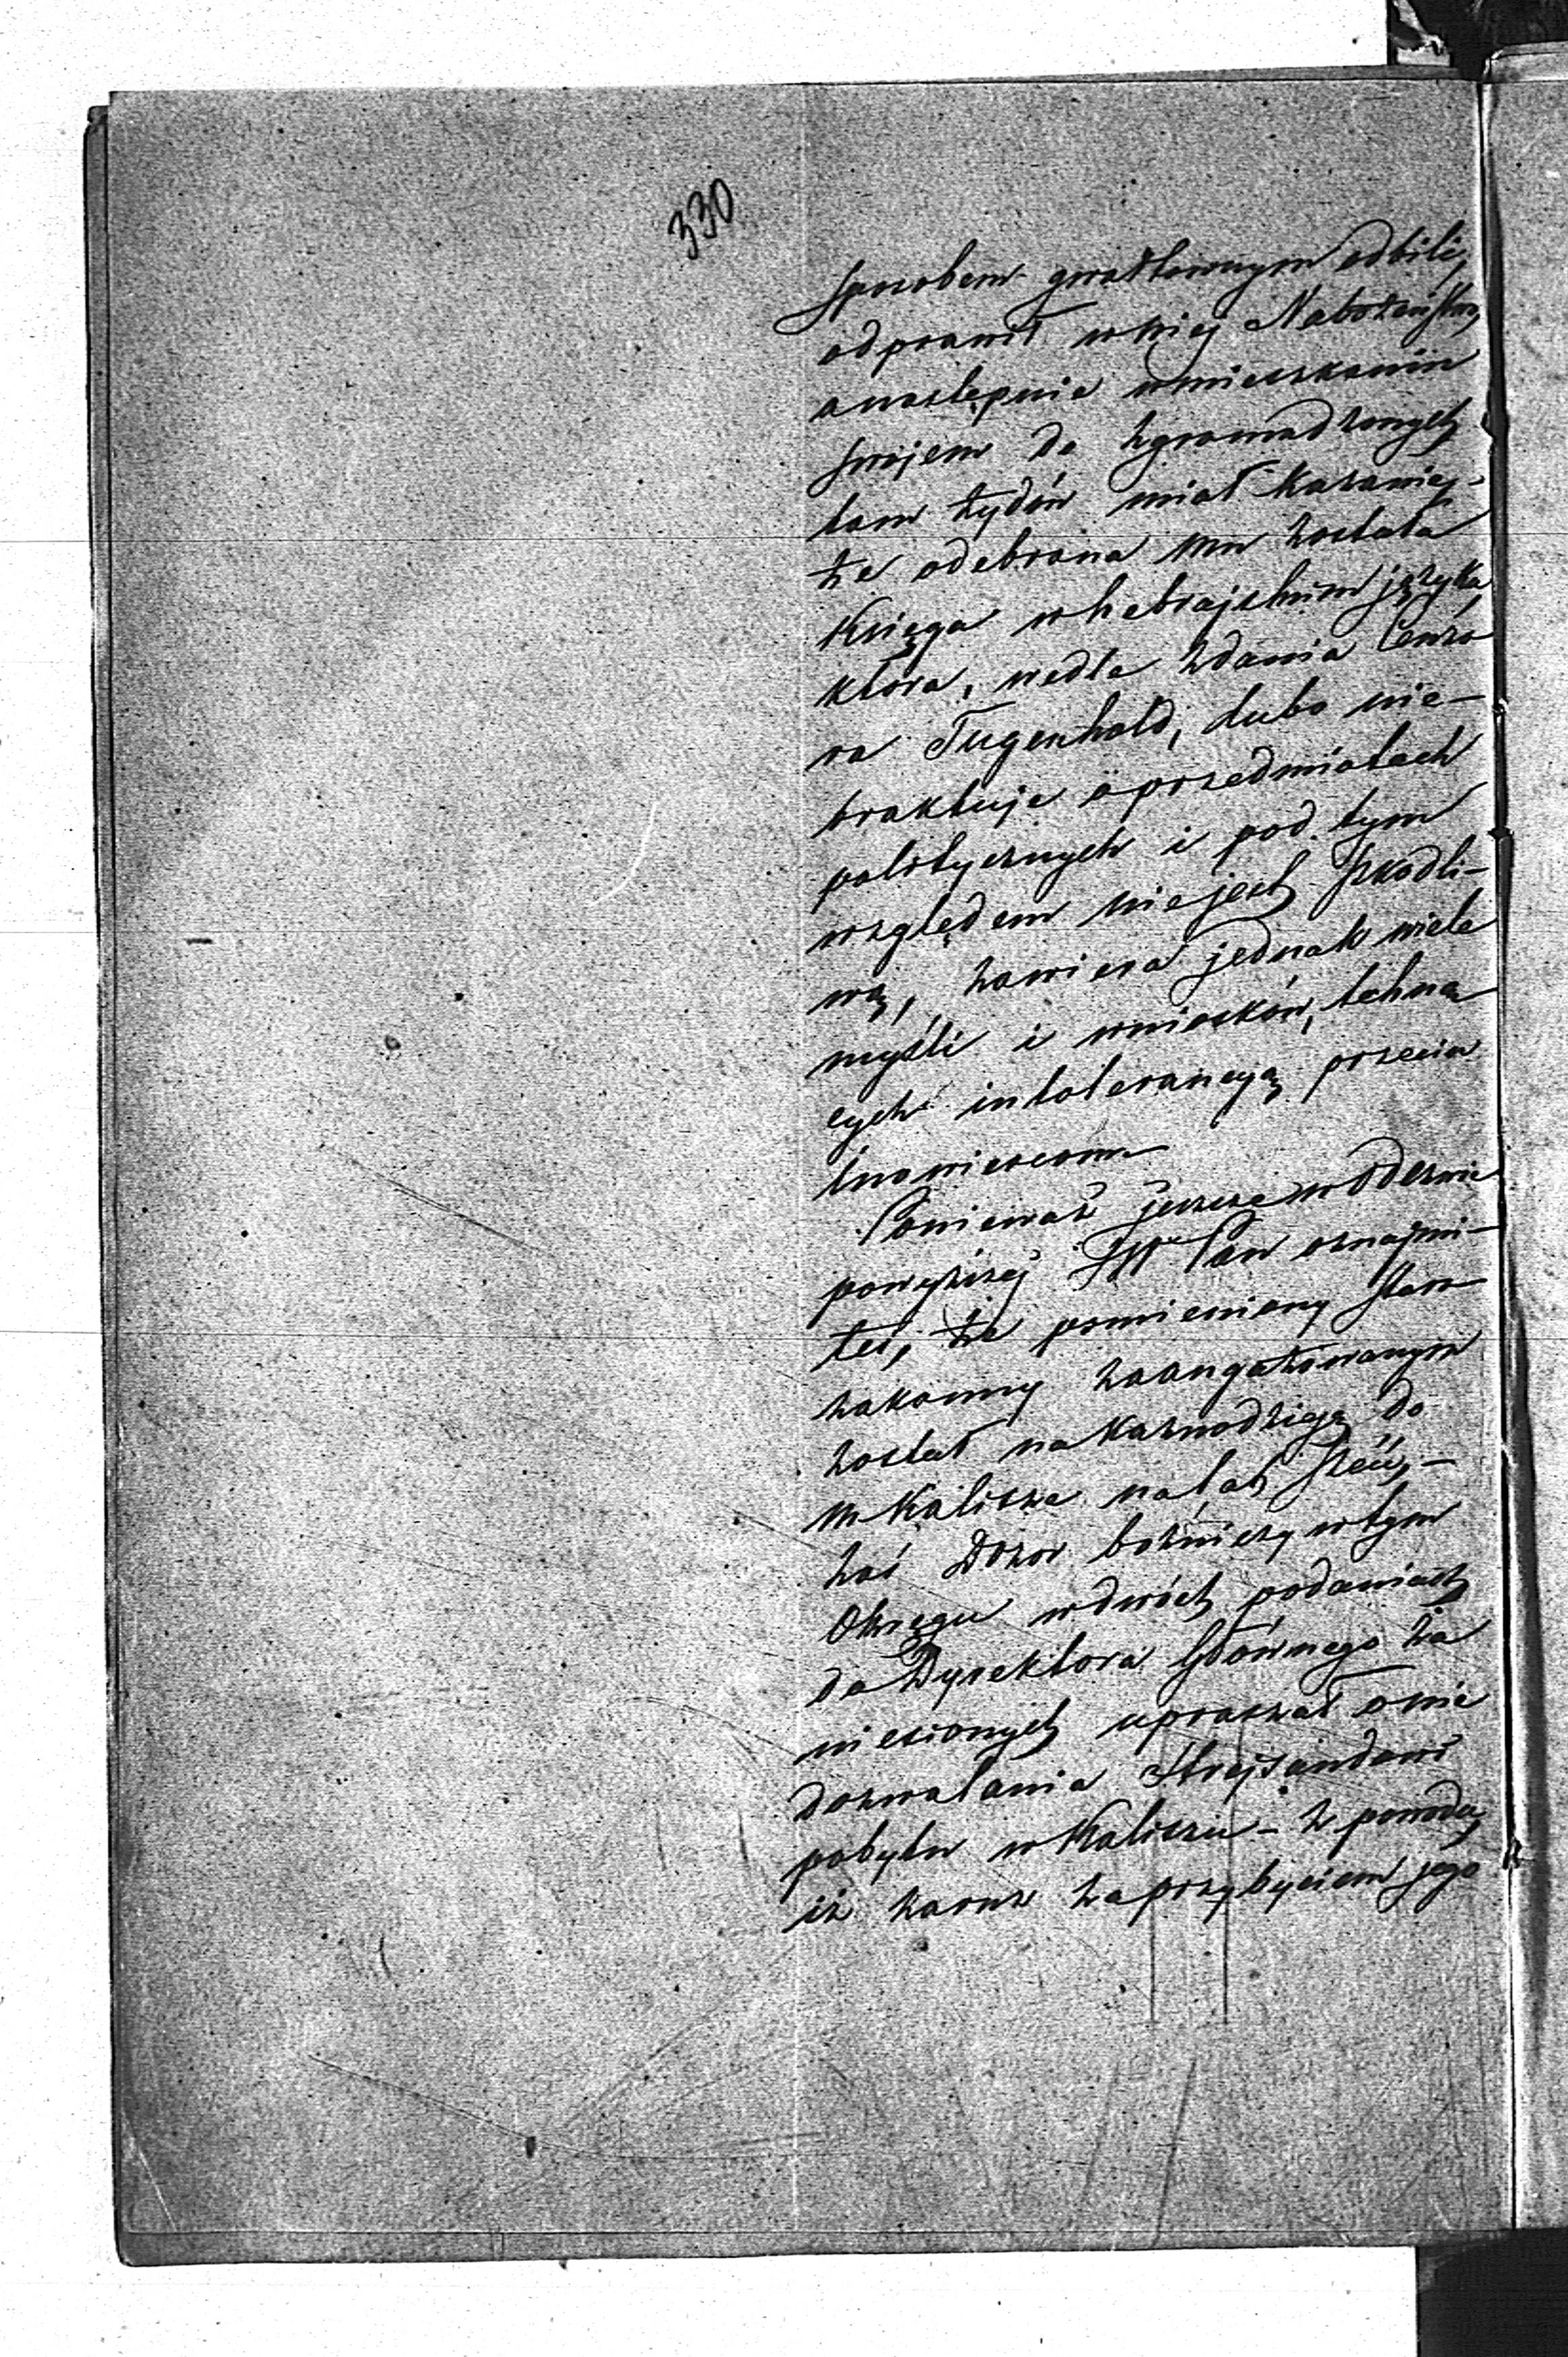 330
sposobem gwałtownym odbili,
odprawił w niej Nabożeństwo,
a nastepnie w mieszkaniu
swojem do zgromadzonych
tam żydów miał kazanie, –
że odebrana mu została
Księga w hebrajskim języku,
która, wedle zdania Cenzo
ra Tugenhold, lubo nie –
traktuje o przedmiotach
politycznych i pod tym
względem nie jest szkodli –
wą, zawiera jednak wiele
myśli i wniosków, tchną
cych intolerancyą przeciw
innowiercom
Ponieważ jeszcze w odezwie
powyższej JW Pan oznajmi –
łeś, że pomieniony Star
zakonny zaangażowanym
został na kaznodzieję do
m Kalisza na lat sześć, –
zaś Dozor bożniczy w tym
Okręgu w dwóch podaniach
do Dyrektora Głównego za
niesionych upraszał o nie
dozwalania Strejsandowi
pobytu w Kaliszu – z powodu,
iż zaraz za przybyciem jego